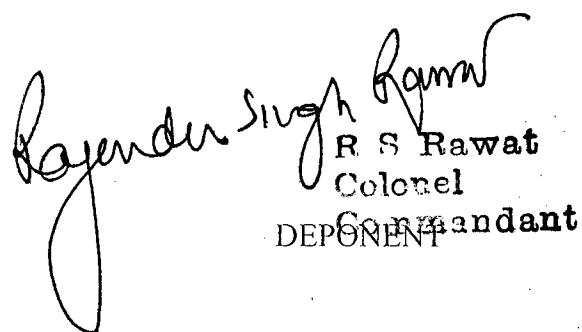 Rajender Singh Rawat
R S Rawat
Colonel
Commandant
DEPONENT